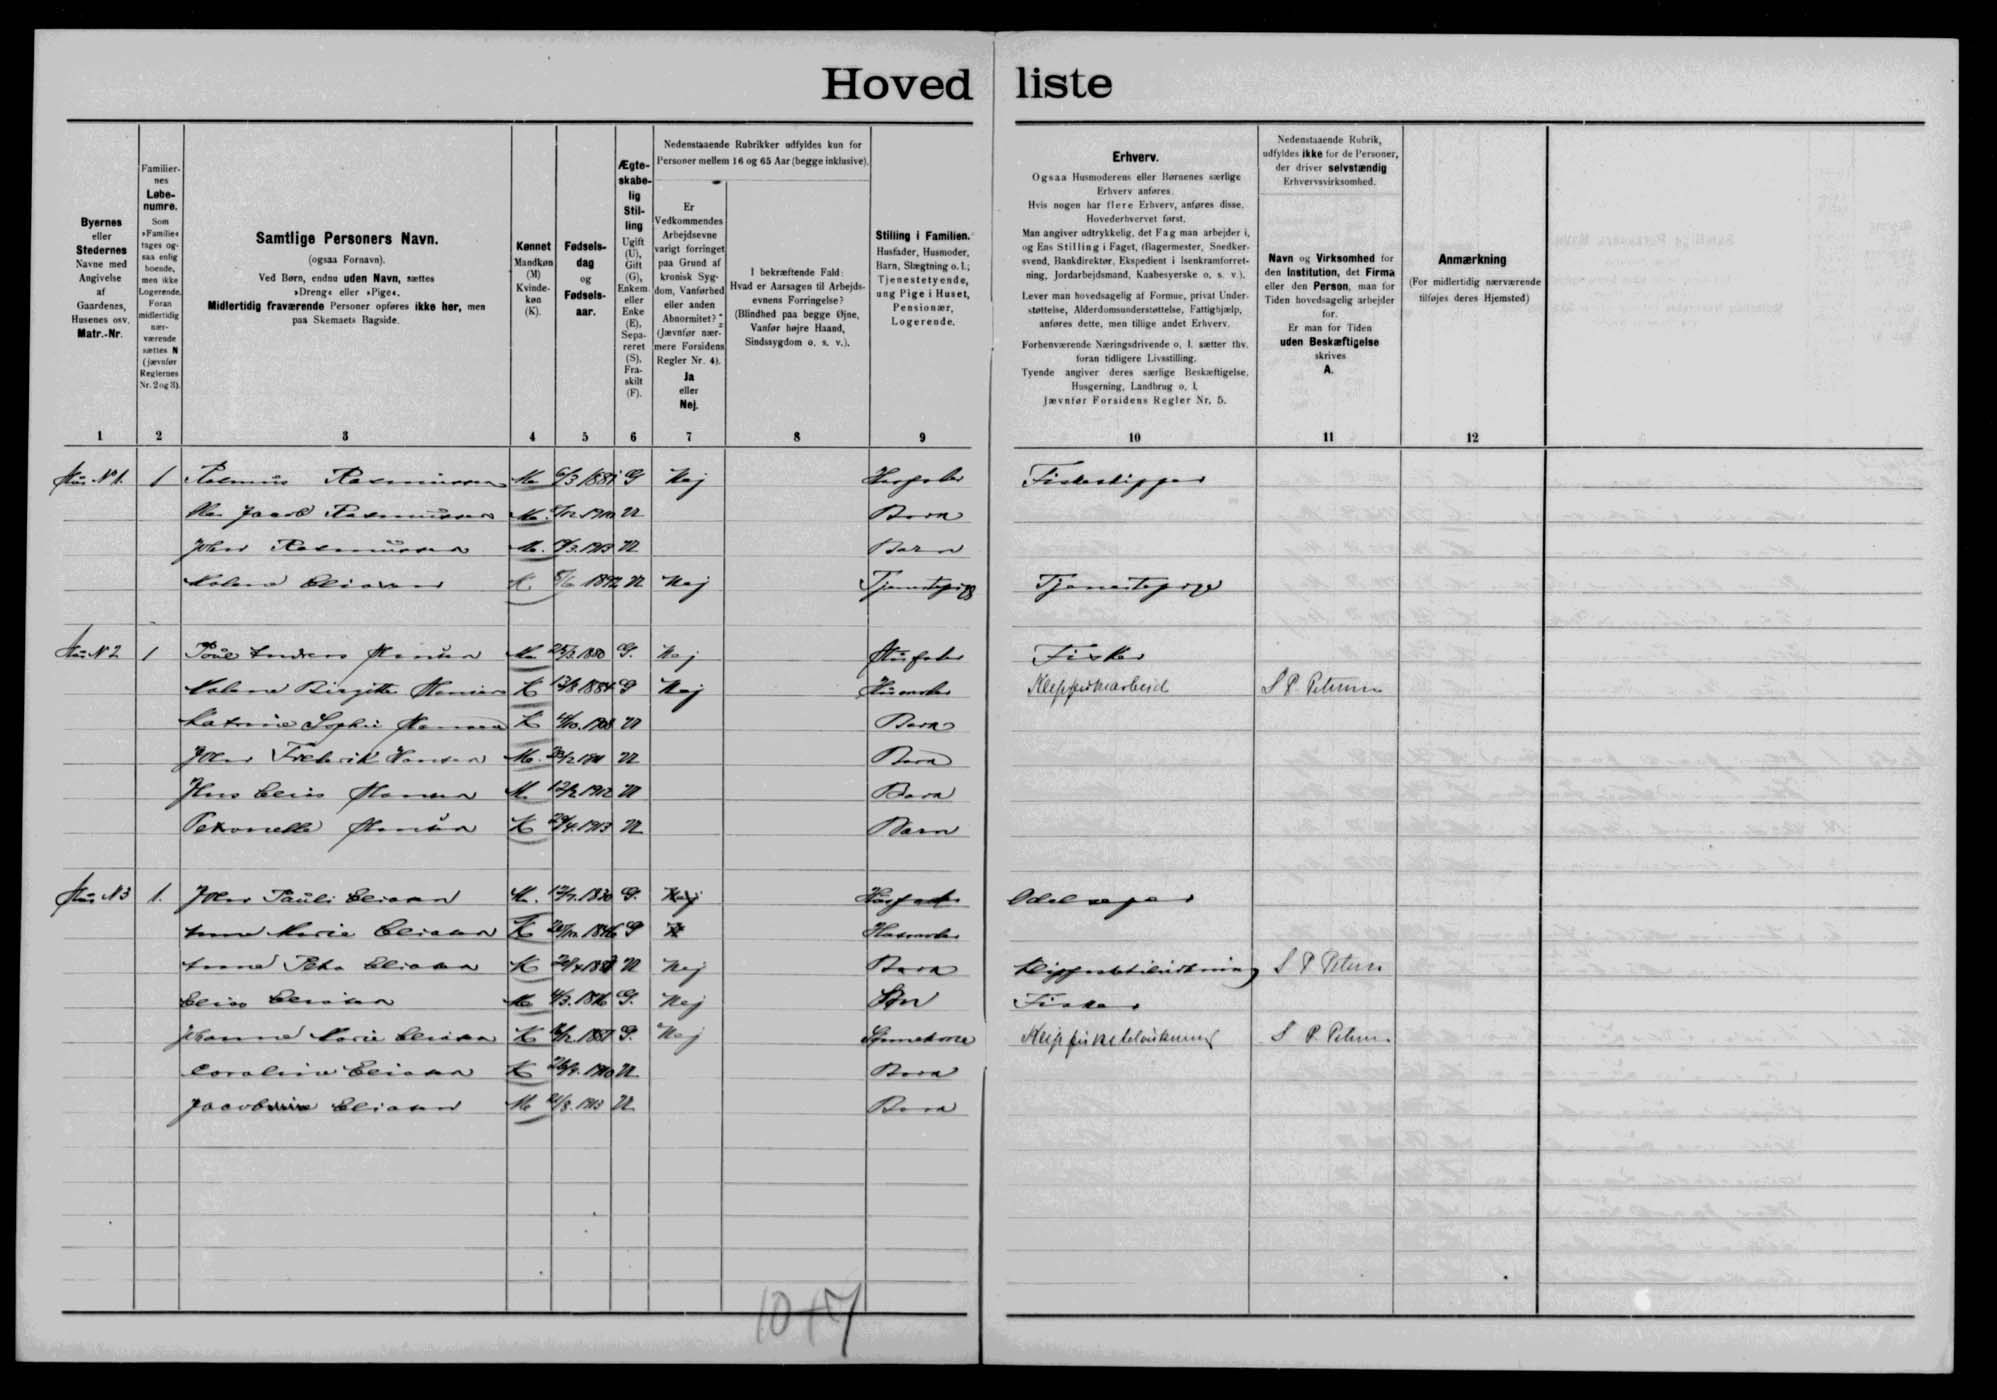 Hoved liste
Byernes
eller
Stedernes
Navne med
Angivelse
af
Gaardenes,
Husenes osv.
Matr.-Nr.
Familier-
nes
Løbe-
numre.
Som
»Familie«
tages og-
saa enlig
boende,
men ikke
Logerende.
Foran
midlertidig
nær-
værende
sættes N
(jævnfør
Reglernes
Nr. 2 og 3).
Samtlige Personers Navn.
(ogsaa Fornavn).
Ved Børn, endnu uden Navn, sættes
»Dreng« eller »Pige«.
Midlertidig fraværende Personer opføres ikke her, men
paa Skemaets Bagside.
Kønnet
Mandkøn
(M)
Kvinde-
køn
(K).
Fødsels-
dag
og
Fødsels-
aar.
Ægte-
skabe-
lig
Stil-
ling
Ugift
(U),
Gift
(G),
Enkem.
eller
Enke
(E),
Sepa-
reret
(S),
Fra-
skilt
(F).
Nedenstaaende Rubrikker udfyldes kun for
Personer mellem 16 og 65 Aar (begge inklusive).
Er
Vedkommendes
Arbejdsevne
varigt forringet
paa Grund af
kronisk Syg-
dom, Vanførhed
eller anden
Abnormitet?
(Jævnfør nær-
mere Forsidens
Regler Nr. 4).
Ja
eller
Nej.
I bekræftende Fald:
Hvad er Aarsagen til Arbejds-
evnens Forringelse?
(Blindhed paa begge Øjne,
Vanfør højre Haand,
Sindssygdom o. s. v.).
Stilling i Familien.
Husfader, Husmoder,
Barn, Slægtning o. l.;
Tjenestetyende,
ung Pige i Huset,
Pensionær,
Logerende.
Erhverv.
Ogsaa Husmoderens eller Børnenes særlige
Erhverv anføres.
Hvis nogen har flere Erhverv, anføres disse,
Hovederhvervet først.
Man angiver udtrykkelig, det Fag man arbejder i,
og Ens Stilling i Faget, (Bagermester, Snedker-
svend, Bankdirektør, Ekspedient i Isenkramforret-
ning, Jordarbejdsmand, Kaabesyerske o. s. v.).
Lever man hovedsagelig af Formue, privat Under-
støttelse, Alderdomsunderstøttelse, Fattighjælp,
anføres dette, men tillige andet Erhverv.
Forhenværende Næringsdrivende o. l. sætter thv.
foran tidligere Livsstilling.
Tyende angiver deres særlige Beskæftigelse,
Husgerning, Landbrug o. l.
Jævnfør Forsidens Regler Nr. 5.
Nedenstaaende Rubrik,
udfyldes ikke for de Personer,
der driver selvstændig
Erhvervsvirksomhed.
Navn og Virksomhed for
den Institution, det Firma
eller den Person, man for
Tiden hovedsagelig arbejder
for.
Er man for Tiden
uden Beskæftigelse
skrives
A.
Anmærkning
(For midlertidig nærværende
tilføjes deres Hjemsted)
1 2 3 4 5 6 7 8 9 10 11 12
Hus N 1. 1 Rasmus Rasmussen M. G Nej Husfader Fiskeskipper
Jacob Rasmussen M. U Barn
John Rasmussen M. U Barn
Malene Eliasen K U Nej Tjenestepige Tjenestepige
Hus N 2 1 Poul Andreas Hansen M. G. Nej Husfader Fisker
Malene Birgitte Hansen K G Nej Husmoder S P Petersen
Katrine Sophie Hansen K U Barn
John Frederik Hansen M. U Barn
Hans Elias Hansen M. U Barn
Petronella Hansen K U Barn
Hus N 3 1. John Pauli Eliasen M. G. Nej Husfader Odelsejer
Anna Marie Eliasen K G Husmoder
Anna Eliasen K U Nej Barn S P Petersen
Elias Eliasen M. G. Nej Søn Fisker
Johanne Marie Eliasen K G. Nej Sønnekone S. P. Petersen
Caroline Eliasen K U Barn
Eliasen M U Barn